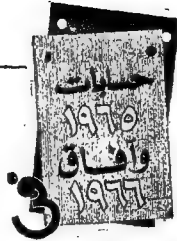 حسابات
١٩٦٥
وآفاق
١٩٦٦
3